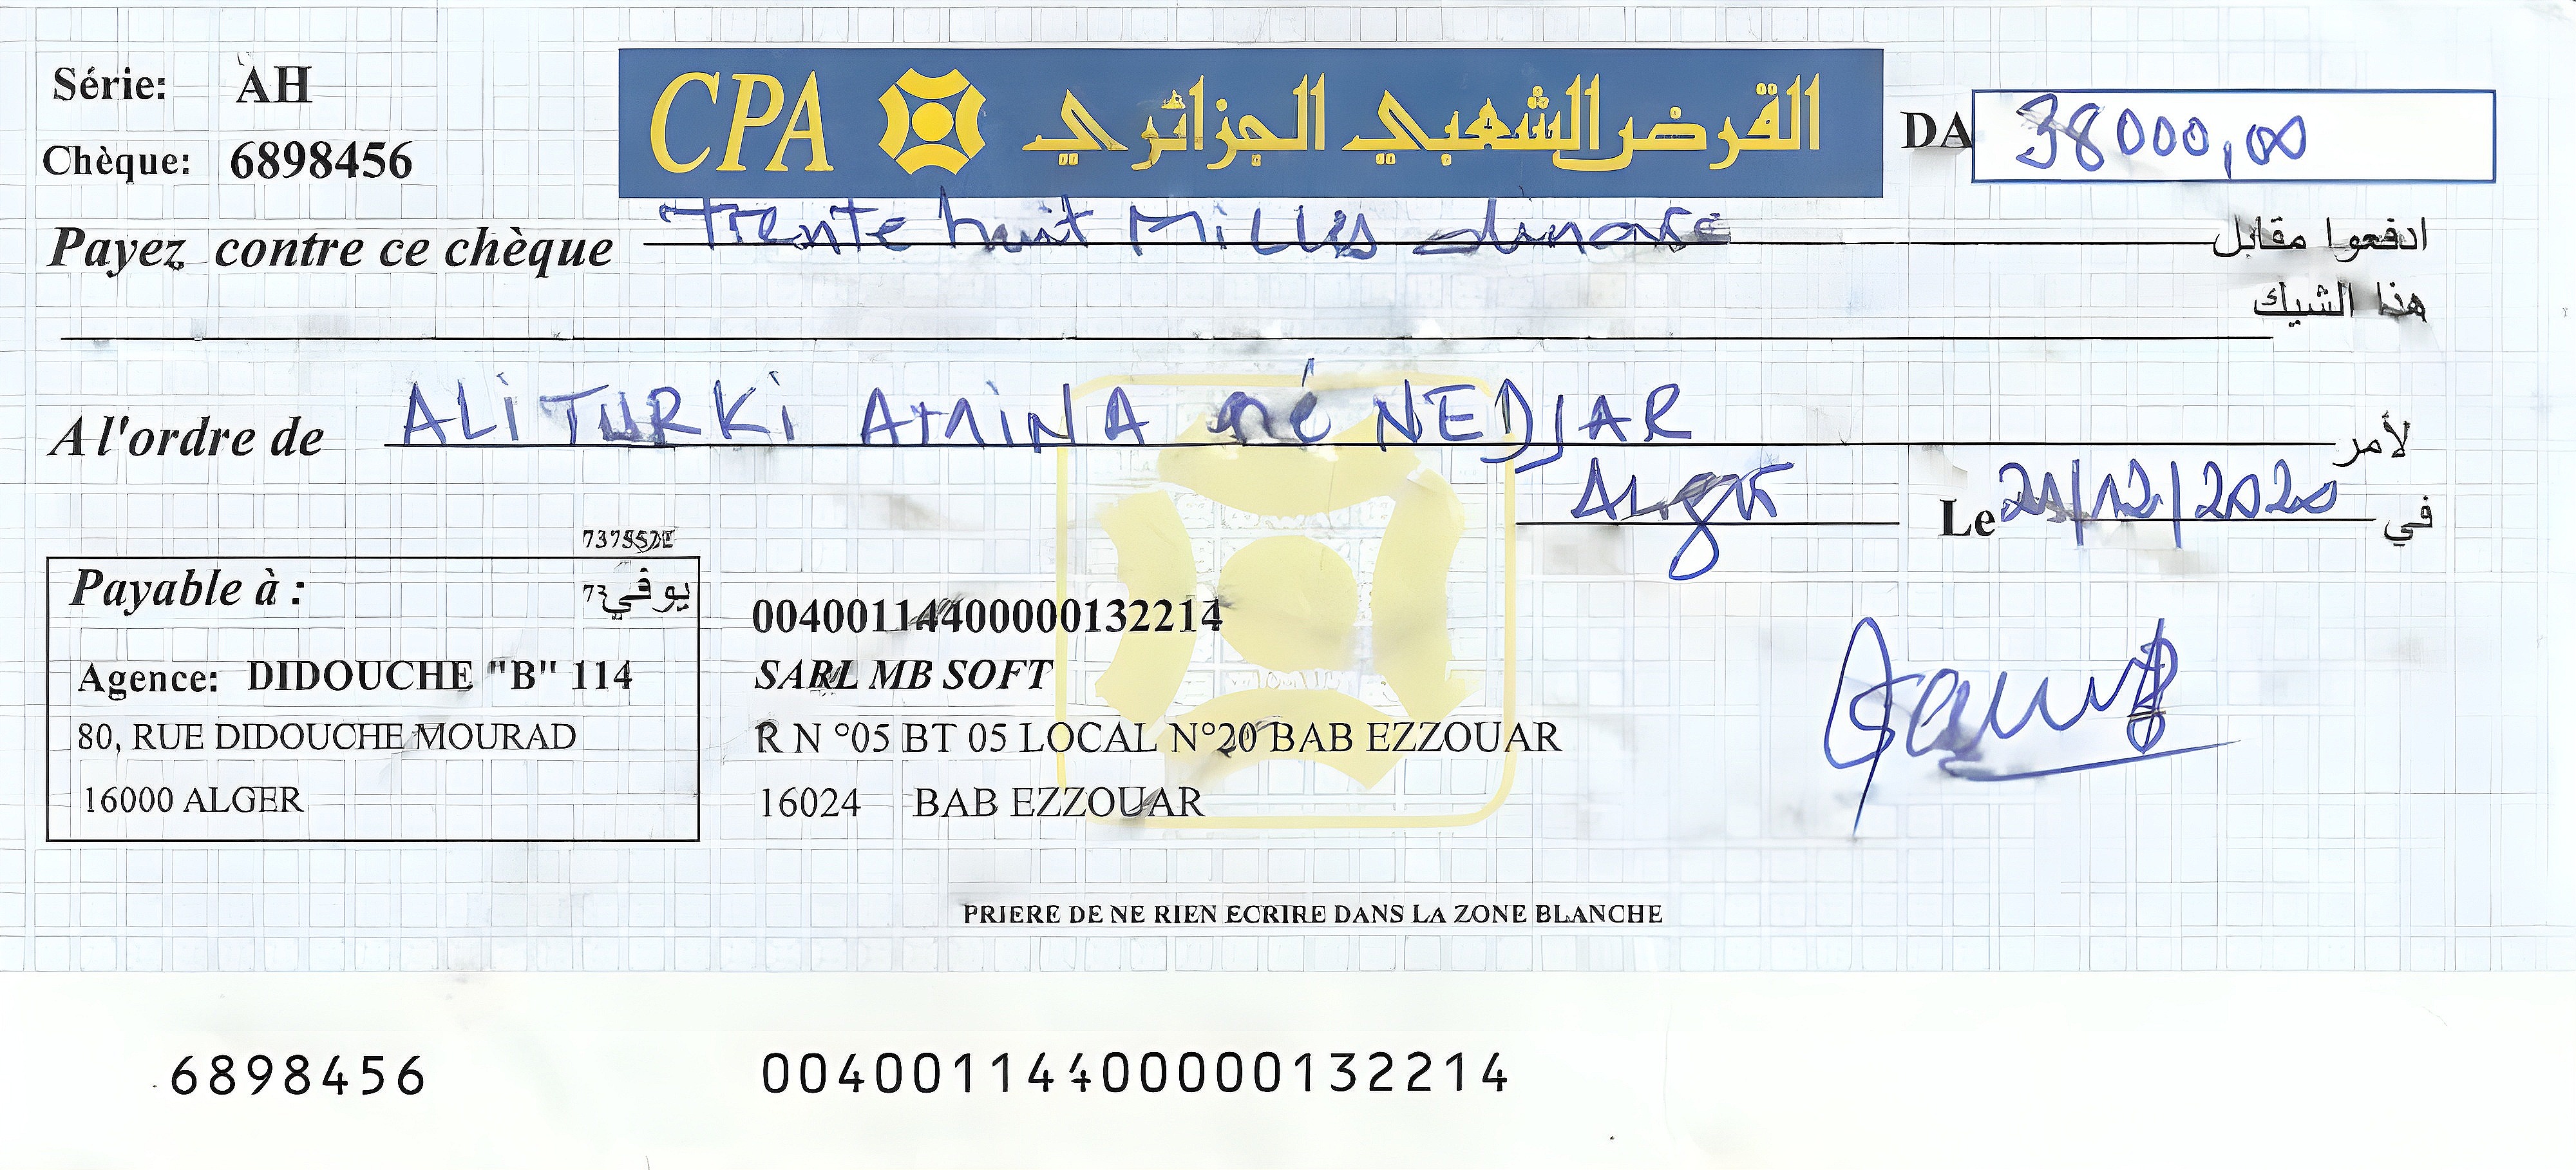 Série: AH
Chèque: 6898456
CPA القرض الشعبي الجزائري
DA 38000,00
Payez contre ce chèque Trente huit Milles dinars ادفعوا مقابل
هذا الشيك
A l'ordre de ALI TURKI AMINA né NEDJAR لأمر
Alger Le 21/12/2020 في
Payable à : يوفي
Agence: DIDOUCHE "B" 114
80, RUE DIDOUCHE MOURAD
16000 ALGER
00400114400000132214
SARL MB SOFT
R N °05 BT 05 LOCAL N°20 BAB EZZOUAR
16024 BAB EZZOUAR
PRIERE DE NE RIEN ECRIRE DANS LA ZONE BLANCHE
6898456 00400114400000132214